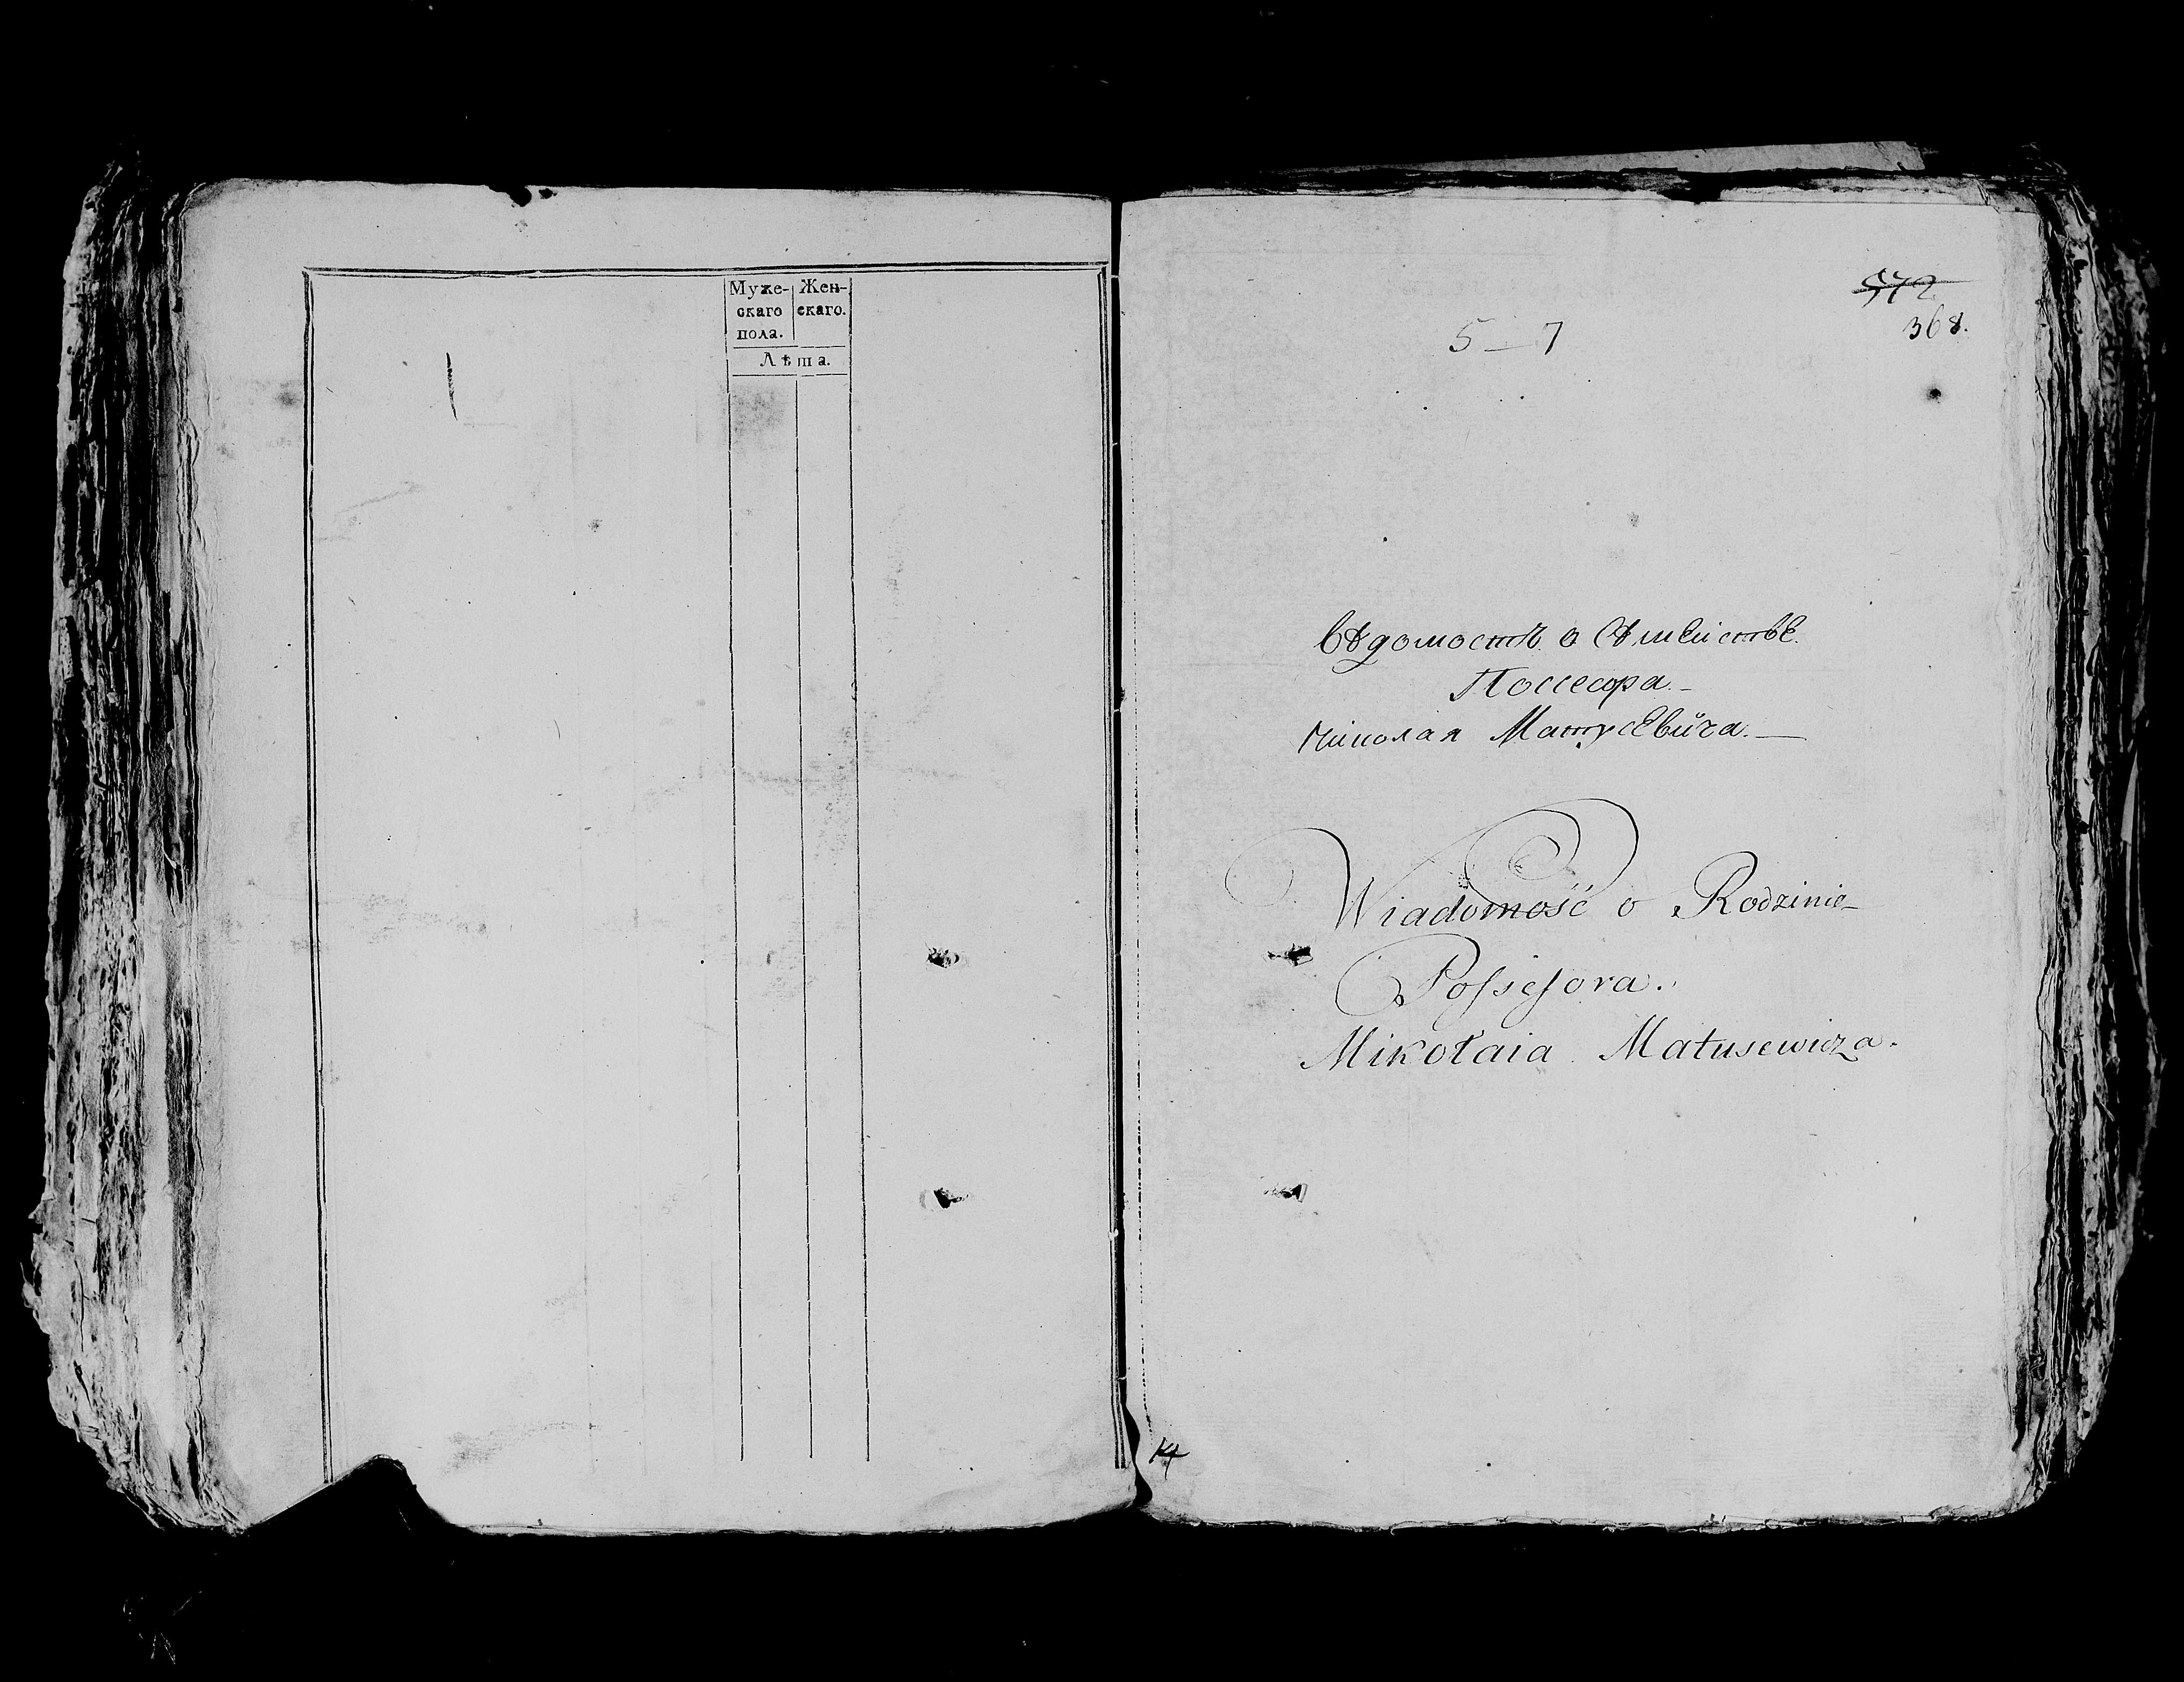 Муже-
скаго
пола.
Жен-
скаго.
Лѣта.
572
368.
5 – 7
Вѣдомость о Сѣмеистве.
Поссесора. –
Николая Матусевича. —
Wiadomość o Rodzinie –
Possesora.
Mikołaia Matusewicza.